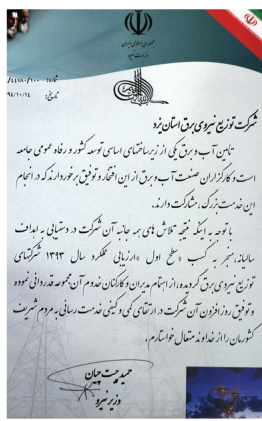 جمهوری اسلامی ایران
وزارت نیرو
شماره: ۴۴۷۸۰/۱۰۰/
تاریخ: ۹۴/۱۰/۱۴
شرکت توزیع نیروی برق استان یزد
تامین آب و برق یکی از زیرساختهای اساسی توسعه کشور و رفاه عمومی جامعه
است و کارگزاران صنعت آب و برق از این افتخار و توفیق برخوردارند که در انجام
این خدمت بزرگ، مشارکت دارند.
با توجه به اینکه نتیجه تلاش های همه جانبه آن شرکت در دستیابی به اهداف
سالیانه، منجر به کسب «سطح اول» ارزیابی عملکرد سال ۱۳۹۳ شرکتهای
توزیع نیروی برق گردیده، از اهتمام مدیران و کارکنان خدوم آن مجموعه قدردانی نموده
و توفیق روزافزون آن شرکت در ارتقای کمی و کیفی خدمت رسانی به مردم شریف
کشورمان را از خداوند متعال خواستارم.
حمید چیت چیان
وزیر نیرو